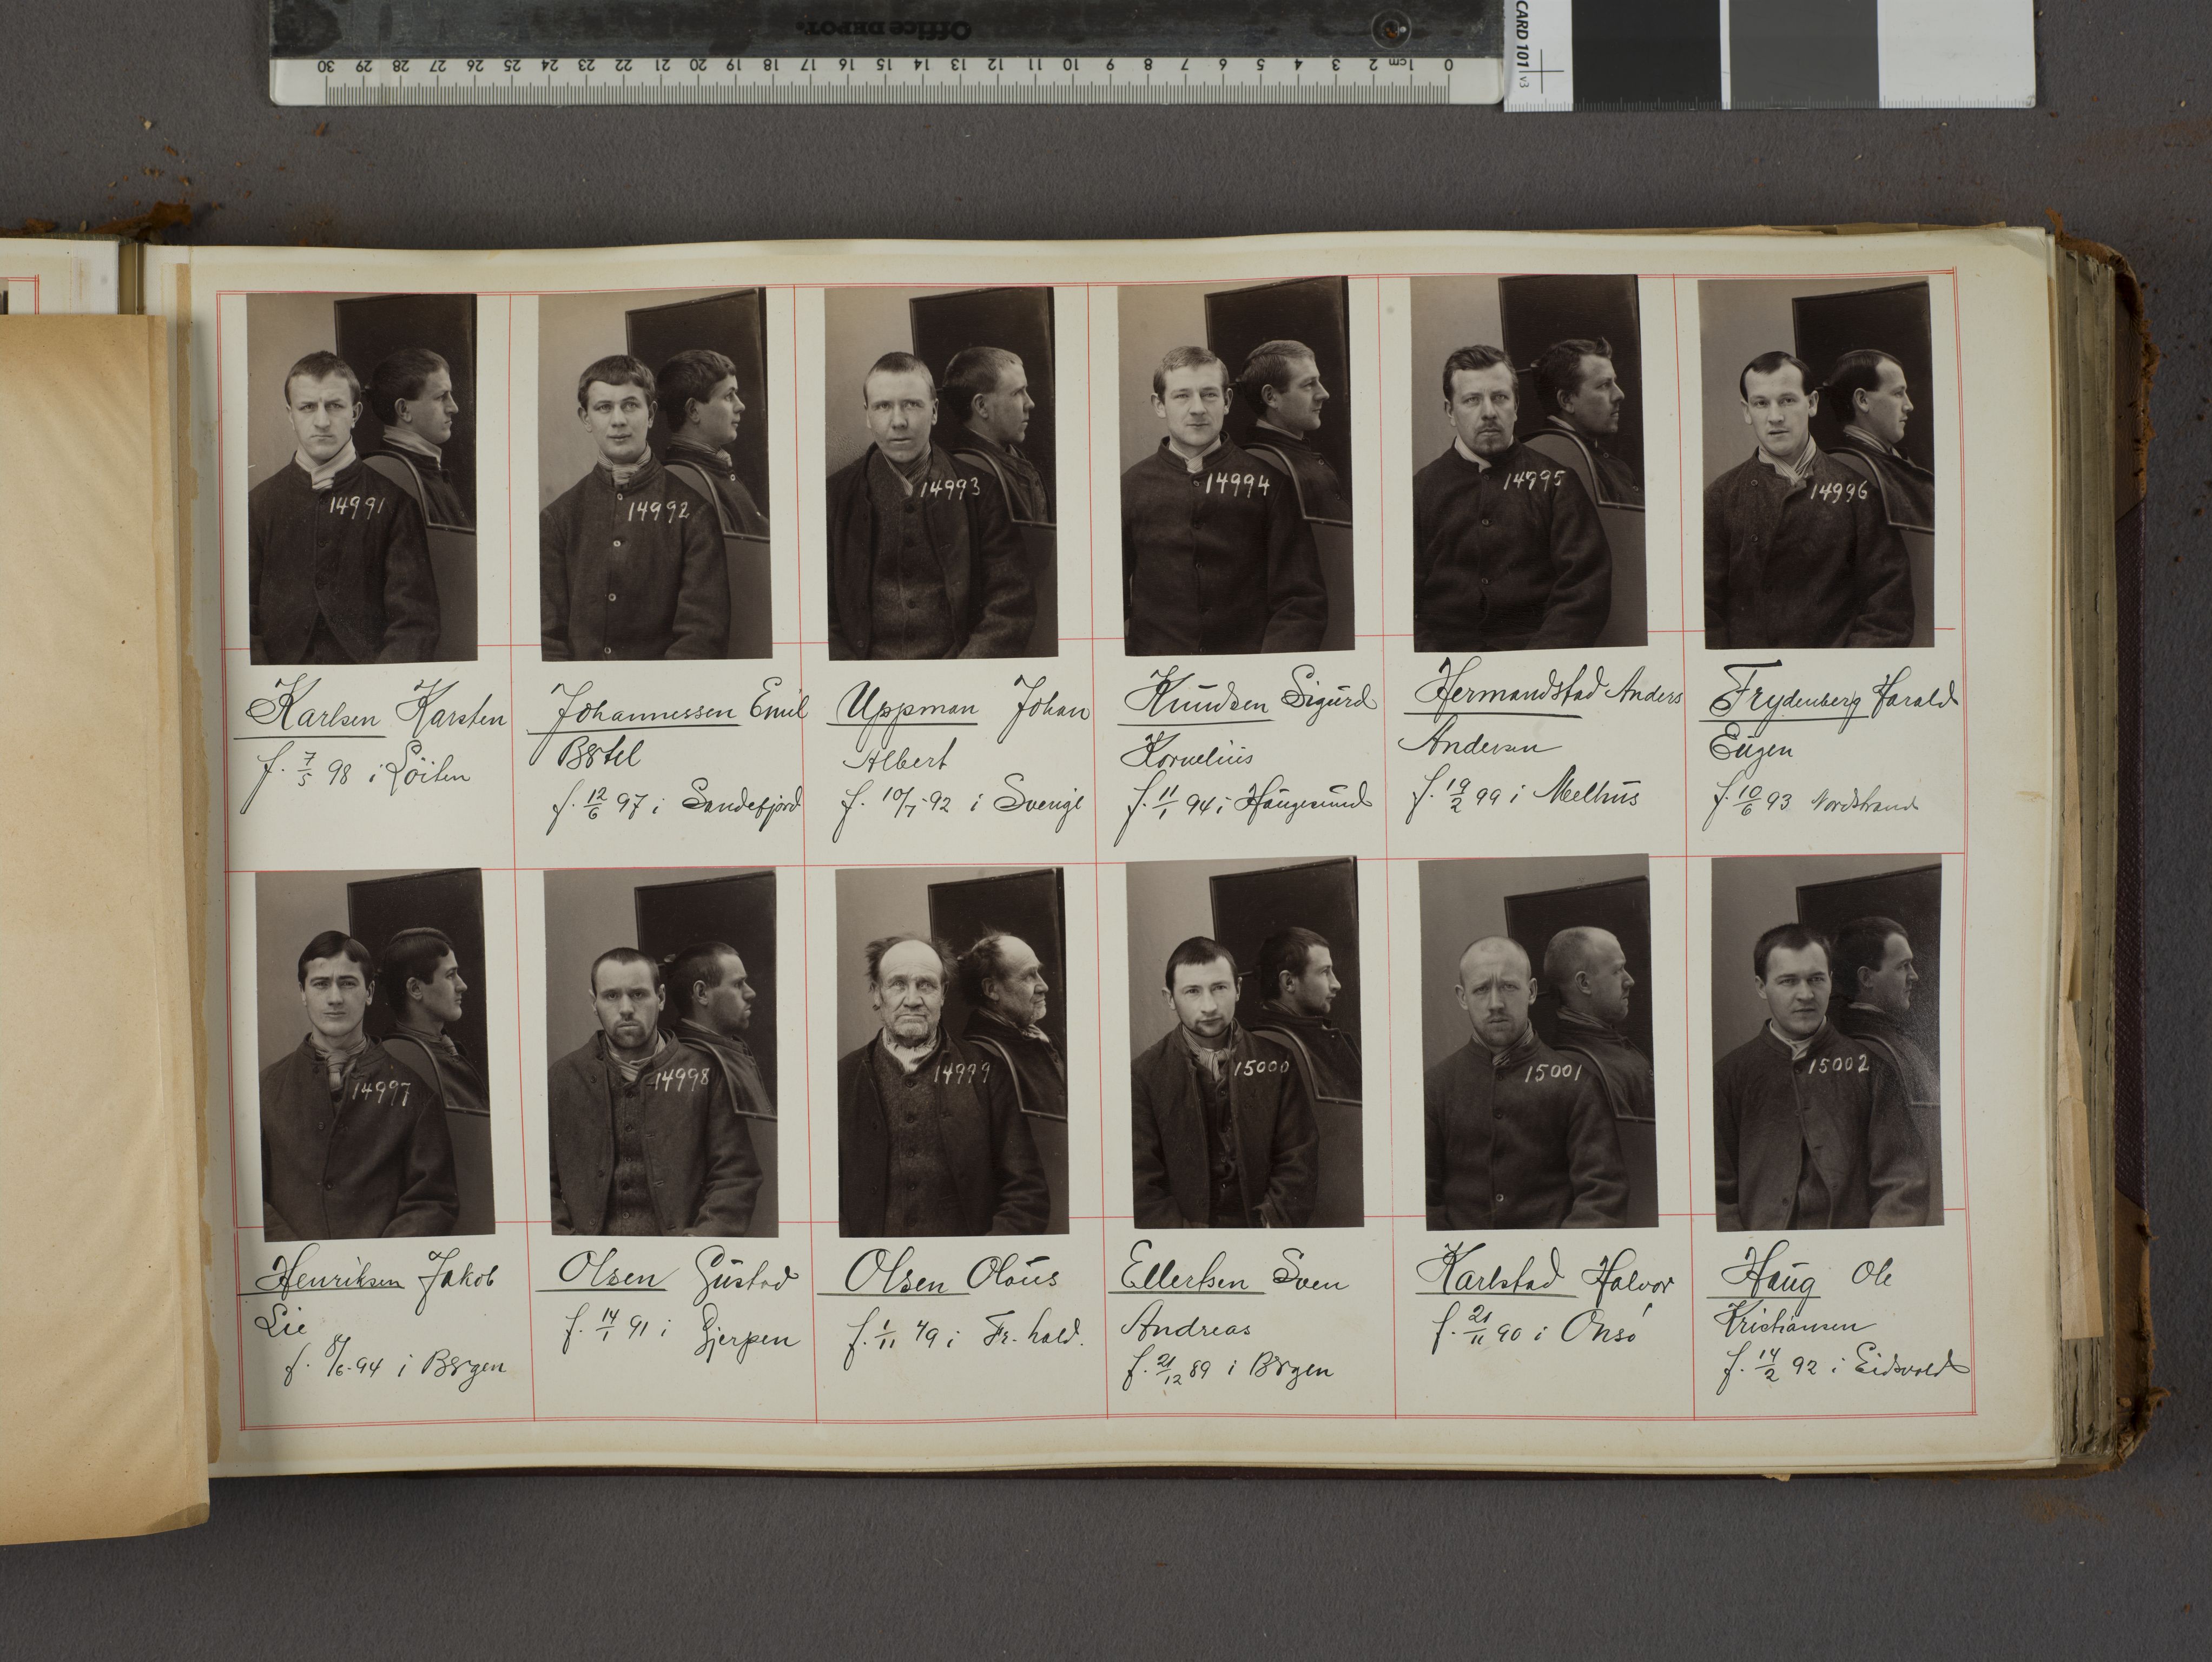 Office DEPOT.
30 29 28 27 26 25 24 23 22 21 20 19 18 17 16 15 14 13 12 11 10 9 8 7 6 5 4 3 2 1cm 0
CARD 101 v3
14991
14992
14993
14994
14995
14996
Karlsen Karsten
f. 7/5 98 i Löiten
Johannessen Emil
Bertel
f. 12/6 97 i Sandefjord
Uppman Johan
Albert
f. 10/7-92 i Sverige
Knudsen Sigurd
Kornelius
f. 11/1 94 i Haugesund
Hermandstad Anders
Andersen
f. 19/2 99 i Melhus
Frydenberg Harald
Eugen
f. 10/6 93 Nordstrand
14997
14998
14999
15000
15001
15002
Henriksen Jakob
Lie
f. 8/6-94 i Bergen
Olsen Gustav
f. 14/1 91 i Gjerpen
Olsen Olaus
f. 1/11 49 i Fr. hald.
Ellertsen Sven
Andreas
f. 21/12 89 i Bergen
Karlstad Halvor
f. 21/11 90 i Onsö
Haug Ole
Kristiansen
f. 14/2 92 i Eidsvold